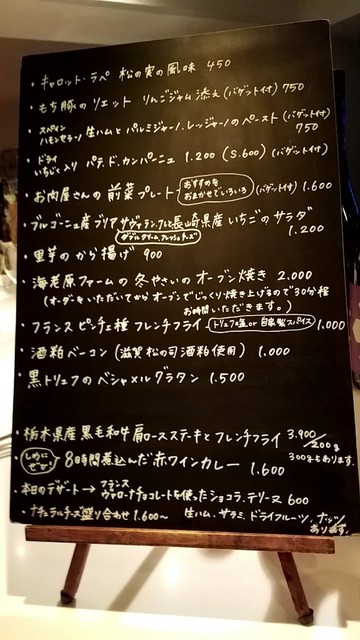 ・キャロット・ラペ 松の実の風味 450
・もち豚のリエット りんごジャム添え(バゲット付) 750
・スペイン ハモンセラーノ 生ハムとパルミジャーノ.レッジャーノのペースト(バゲット付) 750
・ドライ いちじく入り パテ.ド.カンパーニュ 1.200 (S.600) (バゲット付)
・お肉屋さんの前菜プレート おすすめを おまかせでいろいろ (バゲット付) 1.600
・ブルゴーニュ産ブリアサヴァラン.フレと長崎県産いちごのサラダ
ダブルクリーム.フレッシュチーズ 1.200
・里芋のから揚げ 900
・海老原ファームの冬やさいのオーブン焼き 2.000
(オーダーをいただいてからオーブンでじっくり焼き上げるので30分程
お時間いただきます。)
・フランスビンチェ種フレンチフライ トリュフ塩or自家製スパイス 1.000
・酒粕ベーコン(滋賀松の司酒粕使用) 1.000
・黒トリュフのベシャメルグラタン 1.500
・栃木県産黒毛和牛肩ロースステーキとフレンチフライ 3.900/200g
300gもあります。
・しめにぜひ! 8時間煮込んだ赤ワインカレー 1.600
・本日のデザート→フランス ヴァローナチョコレートを使ったショコラ.テリーヌ 600
・ナチュラルチーズ盛り合わせ1.600〜 生ハム、サラミ、ドライフルーツ、ナッツ
あります。